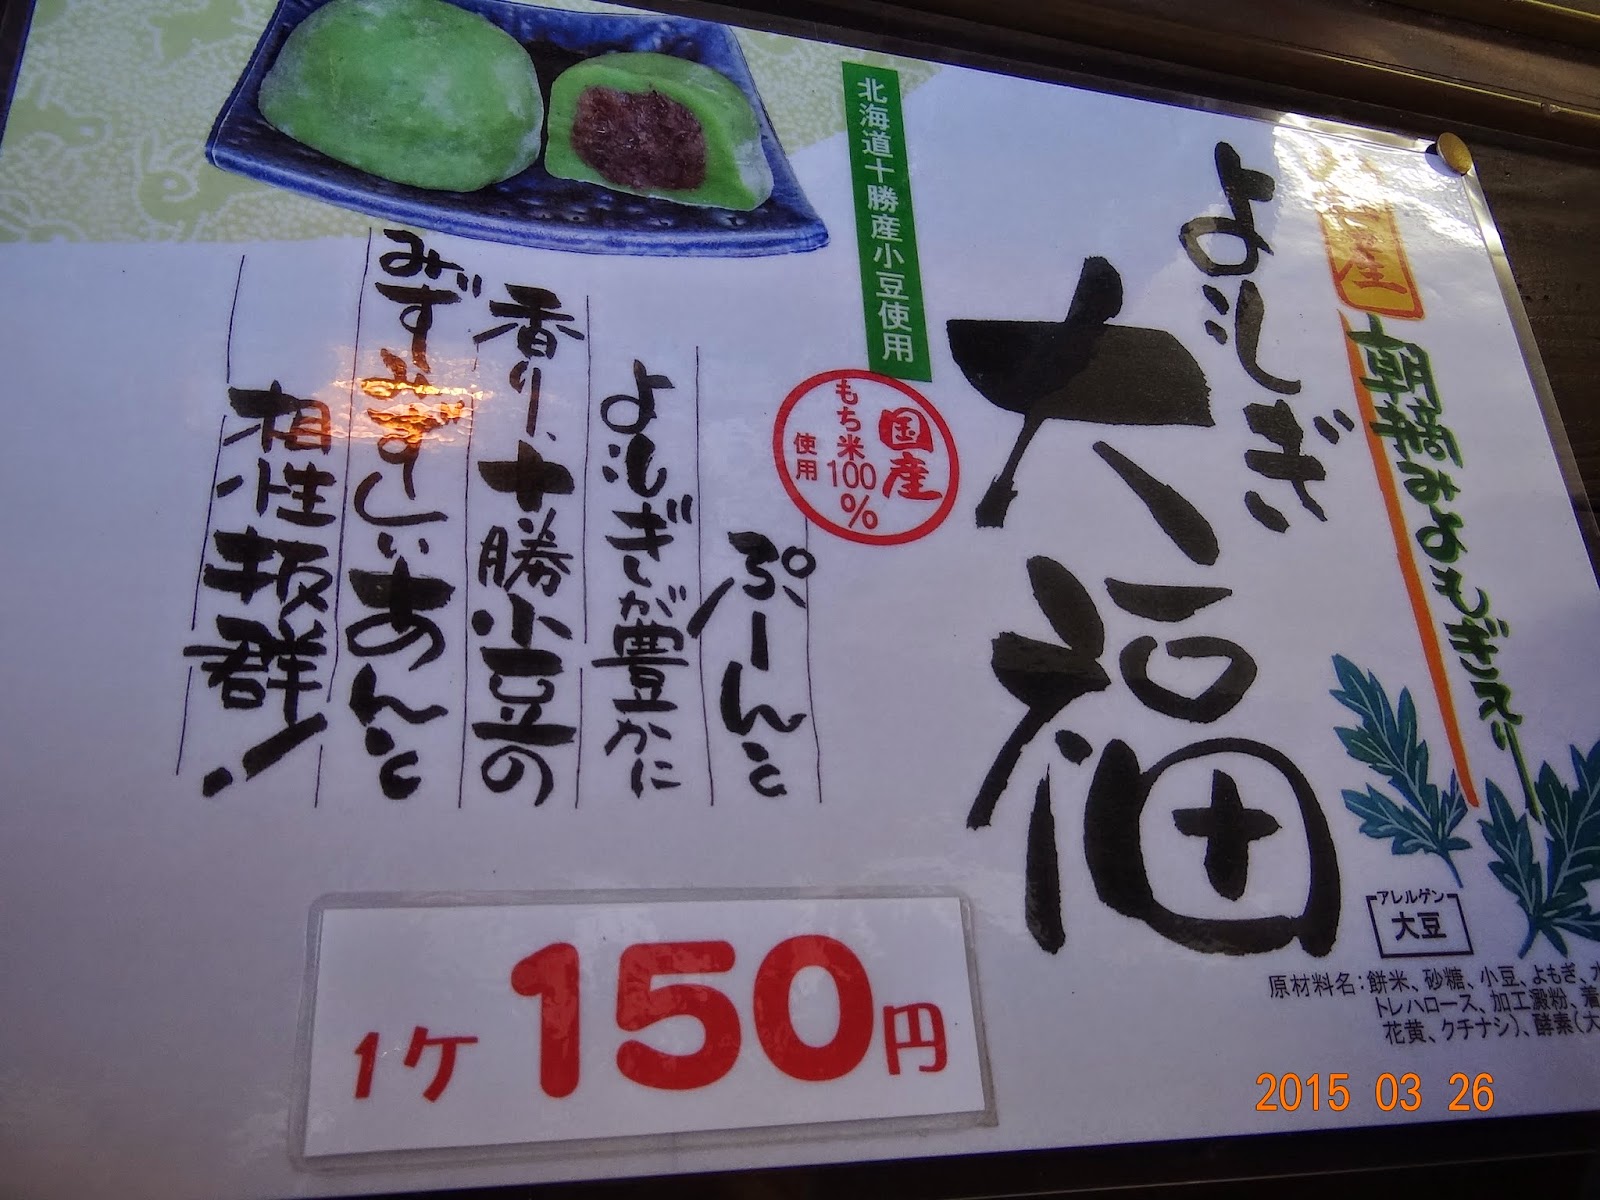 朝摘みよもぎ入り
よもぎ
大福
北海道十勝産小豆使用
国産
もち米
100
%
使用
ぷーんと
よもぎが豊かに
香り、十勝小豆の
みずみずしいあんと
相性抜群!
1ケ150円
アレルゲン
大豆
原材料名:餅米、砂糖、小豆、よもぎ、
トレハロース、加工澱粉、着
花黄、クチナシ)、酵素(大
2015 03 26